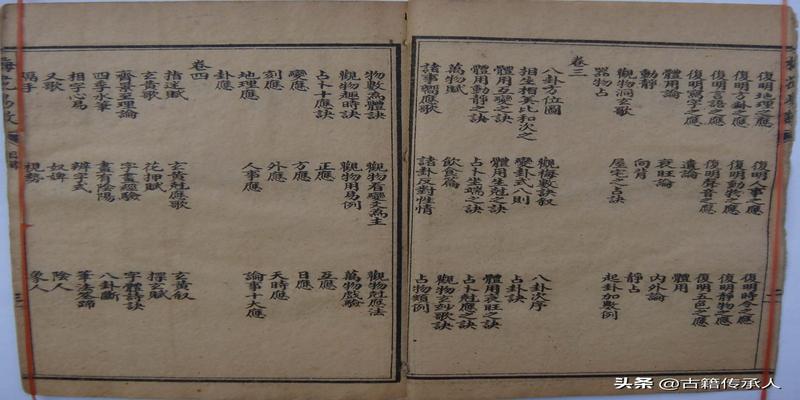 復明地理之應 復明人事之應 復明時令之應
復明方卦之應 復明動物之應 復明靜物之應
復明言語之應 復明聲音之應 復明五色之應
復明寫字之應 遺論 體用
體用論 衰旺論 內外論
動靜 向背 靜占
觀物洞玄歌 屋宅之占訣 起卦加數例
器物占
卷三
八卦方位圖 觀梅數訣叙 八卦次序
相生相尅比和次之 變卦式八則 占卦訣
體用互變之訣 體用生尅之訣 體用衰旺之訣
體用動靜之訣 占卜坐端之訣 占卜尅應之訣
萬物賦 飲食篇 觀物玄妙歌訣
諸事響應歌 諸卦反對性情 占物類例
物數為體訣 觀物看變爻為主 觀物尅應法
觀物趣時訣 觀物用易例 萬物戲驗
占卜十應訣 正應 互應
變應 方應 日應
刻應 外應 天時應
地理應 人事應 論事十大應
卦應
卷四
指迷賦 玄黄尅應歌 玄黄叙
玄黄歌 花押賦 探玄賦
齊景至理論 字畫經驗 字體詩訣
四季水筆 畫有陰陽 八卦斷
相字心易 辨字式 筆法筌蹄
又歌 奴婢 陰人
視勢 象人
梅花易數 目錄
头条 @古籍传承人